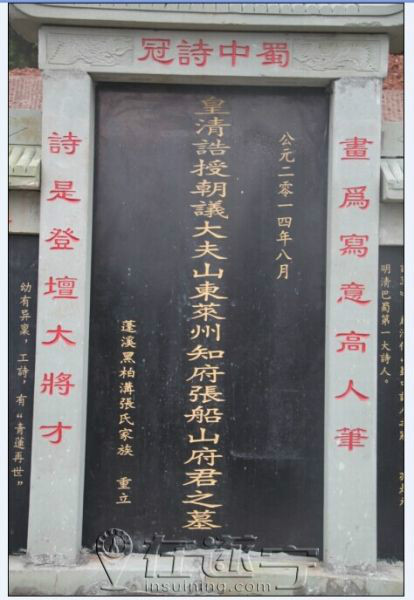 蜀中詩冠
畫爲寫意高人筆
詩是登壇大將才
公元二零一四年八月
皇清誥授朝議大夫山東萊州知府張船山府君之墓
蓬溪黑柏溝張氏家族 重立
明清巴蜀第一大詩人。
幼有异禀，工詩，有“青蓮再世”
在遂宁
insuining.com